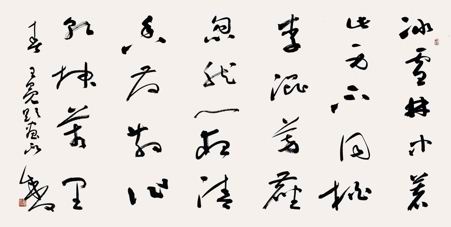 冰雪林中著
此身不同桃
李混芳塵
忽然一夜清
香發散作
乾坤萬里
春 王冕